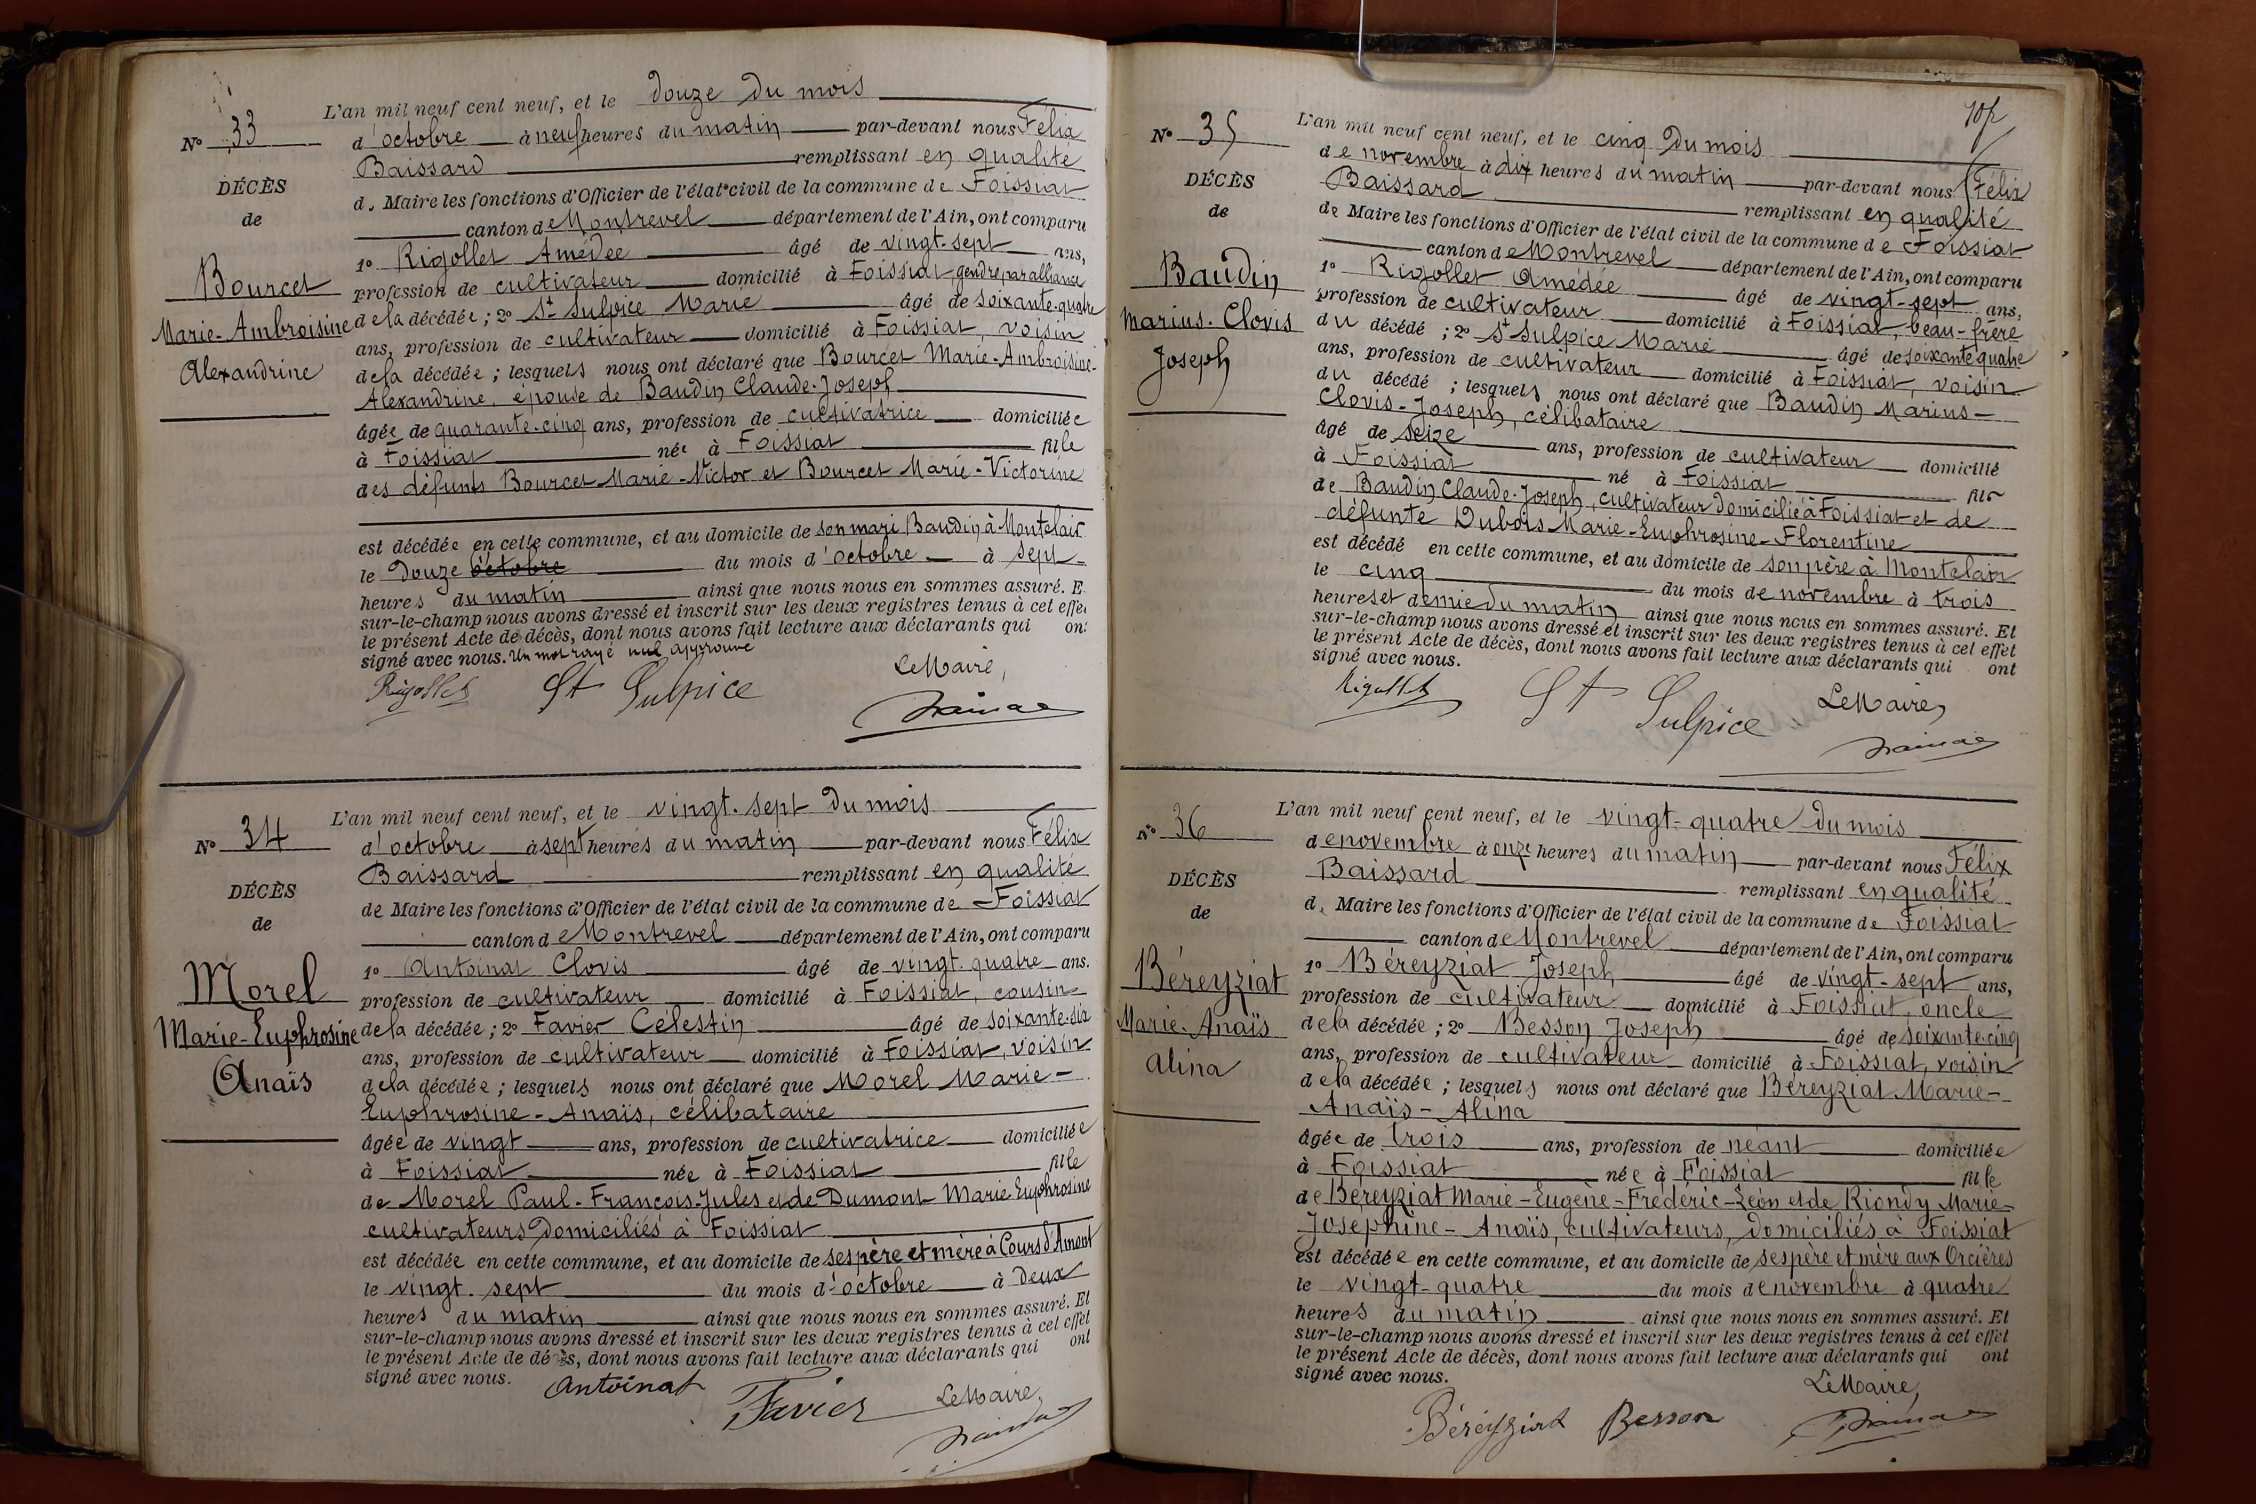 L'an mil neuf cent neuf, et le douze du mois
N° 33
d'octobre à neuf heures du matin par-devant nous Félix
Baissard remplissant en qualité
DÉCÈS
de Maire les fonctions d'Officier de l'état civil de la commune de Foissiat
de
canton de Montrevel département de l'Ain, ont comparu
1° Rigollet Amédée âgé de vingt-sept ans,
Bourcet
profession de cultivateur domicilié à Foissiat gendre par alliance
Marie-Ambroisine
de la décédée ; 2° St Sulpice Marie âgé de soixante-quatre
ans, profession de cultivateur domicilié à Foissiat, voisin
Alexandrine
de la décédée ; lesquels nous ont déclaré que Bourcet Marie-Ambroisine-
Alexandrine, épouse de Baudin Claude-Joseph
âgée de quarante-cinq ans, profession de cultivatrice domiciliée
à Foissiat née à Foissiat fille
des défunts Bourcet Marie-Victor et Bourcet Marie-Victorine
est décédée en cette commune, et au domicile de son mari Baudin à Montclair
le douze octobre du mois d'octobre à sept
heures du matin ainsi que nous nous en sommes assuré. E
sur-le-champ nous avons dressé et inscrit sur les deux registres tenus à cet effe
le présent Acte de décès, dont nous avons fait lecture aux déclarants qui on
signé avec nous. Un mot rayé nul approuvé
Le Maire,
Rigollet St Sulpice
N° 34
L'an mil neuf cent neuf, et le vingt-sept du mois
d'octobre à sept heures du matin par-devant nous Félix
Baissard remplissant en qualité
DÉCÈS
de Maire les fonctions d'Officier de l'état civil de la commune de Foissiat
de
canton de Montrevel département de l'Ain, ont comparu
1° Antoinat Clovis âgé de vingt-quatre ans.
Morel
profession de cultivateur domicilié à Foissiat, cousin
Marie-Euphrosine
de la décédée ; 2° Favier Célestin âgé de soixante-six
ans, profession de cultivateur domicilié à Foissiat, voisin
Anaïs
de la décédée ; lesquels nous ont déclaré que Morel Marie-
Euphrosine-Anaïs, célibataire
âgée de vingt ans, profession de cultivatrice domiciliée
à Foissiat née à Foissiat fille
de Morel Paul-François-Jules et de Dumont Marie Euphrosine
cultivateurs domiciliés à Foissiat
est décédée en cette commune, et au domicile de ses père et mère à Cours d'Amont
le vingt-sept du mois d'octobre à deux
heures du matin ainsi que nous nous en sommes assuré. Et
sur-le-champ nous avons dressé et inscrit sur les deux registres tenus à cet effet
le présent Acte de décès, dont nous avons fait lecture aux déclarants qui ont
signé avec nous.
Antoinat Favier Le Maire,
N° 35
L'an mil neuf cent neuf, et le cinq du mois
de novembre à dix heures du matin par-devant nous Félix
DÉCÈS
Baissard remplissant en qualité
de
de Maire les fonctions d'Officier de l'état civil de la commune de Foissiat
canton de Montrevel département de l'Ain, ont comparu
Baudin
1° Rigollet Amédée âgé de vingt-sept ans,
profession de cultivateur domicilié à Foissiat, beau-frère
Marius-Clovis
du décédé ; 2° St Sulpice Marie âgé de soixante quatre
Joseph
ans, profession de cultivateur domicilié à Foissiat, voisin
du décédé ; lesquels nous ont déclaré que Baudin Marius-
Clovis-Joseph, célibataire
âgé de seize ans, profession de cultivateur domicilié
à Foissiat né à Foissiat fils
de Baudin Claude-Joseph, cultivateur domicilié à Foissiat et de
défunte Dubois Marie-Euphrosine-Florentine
est décédé en cette commune, et au domicile de son père à Montclair
le cinq du mois de novembre à trois
heures et demie du matin ainsi que nous nous en sommes assuré. Et
sur-le-champ nous avons dressé et inscrit sur les deux registres tenus à cet effet
le présent Acte de décès, dont nous avons fait lecture aux déclarants qui ont
signé avec nous.
Rigollet St Sulpice Le Maire,
N° 36
L'an mil neuf cent neuf, et le vingt-quatre du mois
de novembre à onze heures du matin par-devant nous Félix
Baissard remplissant en qualité
DÉCÈS
de Maire les fonctions d'Officier de l'état civil de la commune de Foissiat
de
canton de Montrevel département de l'Ain, ont comparu
1° Béreyziat Joseph âgé de vingt-sept ans,
Béreyziat
profession de cultivateur domicilié à Foissiat, oncle
Marie-Anaïs
de la décédée ; 2° Besson Joseph âgé de soixante-cinq
Alina
ans, profession de cultivateur domicilié à Foissiat, voisin
de la décédée ; lesquels nous ont déclaré que Béreyziat Marie-
Anaïs-Alina
âgée de trois ans, profession de néant domiciliée
à Foissiat née à Foissiat fille
de Béreyziat Marie-Eugène-Frédéric-Léon et de Riondy Marie-
Joséphine-Anaïs, cultivateurs, domiciliés à Foissiat
est décédée en cette commune, et au domicile de ses père et mère aux Orcières
le vingt-quatre du mois de novembre à quatre
heures du matin ainsi que nous nous en sommes assuré. Et
sur-le-champ nous avons dressé et inscrit sur les deux registres tenus à cet effet
le présent Acte de décès, dont nous avons fait lecture aux déclarants qui ont
signé avec nous.
Le Maire,
Béréyziat Besson